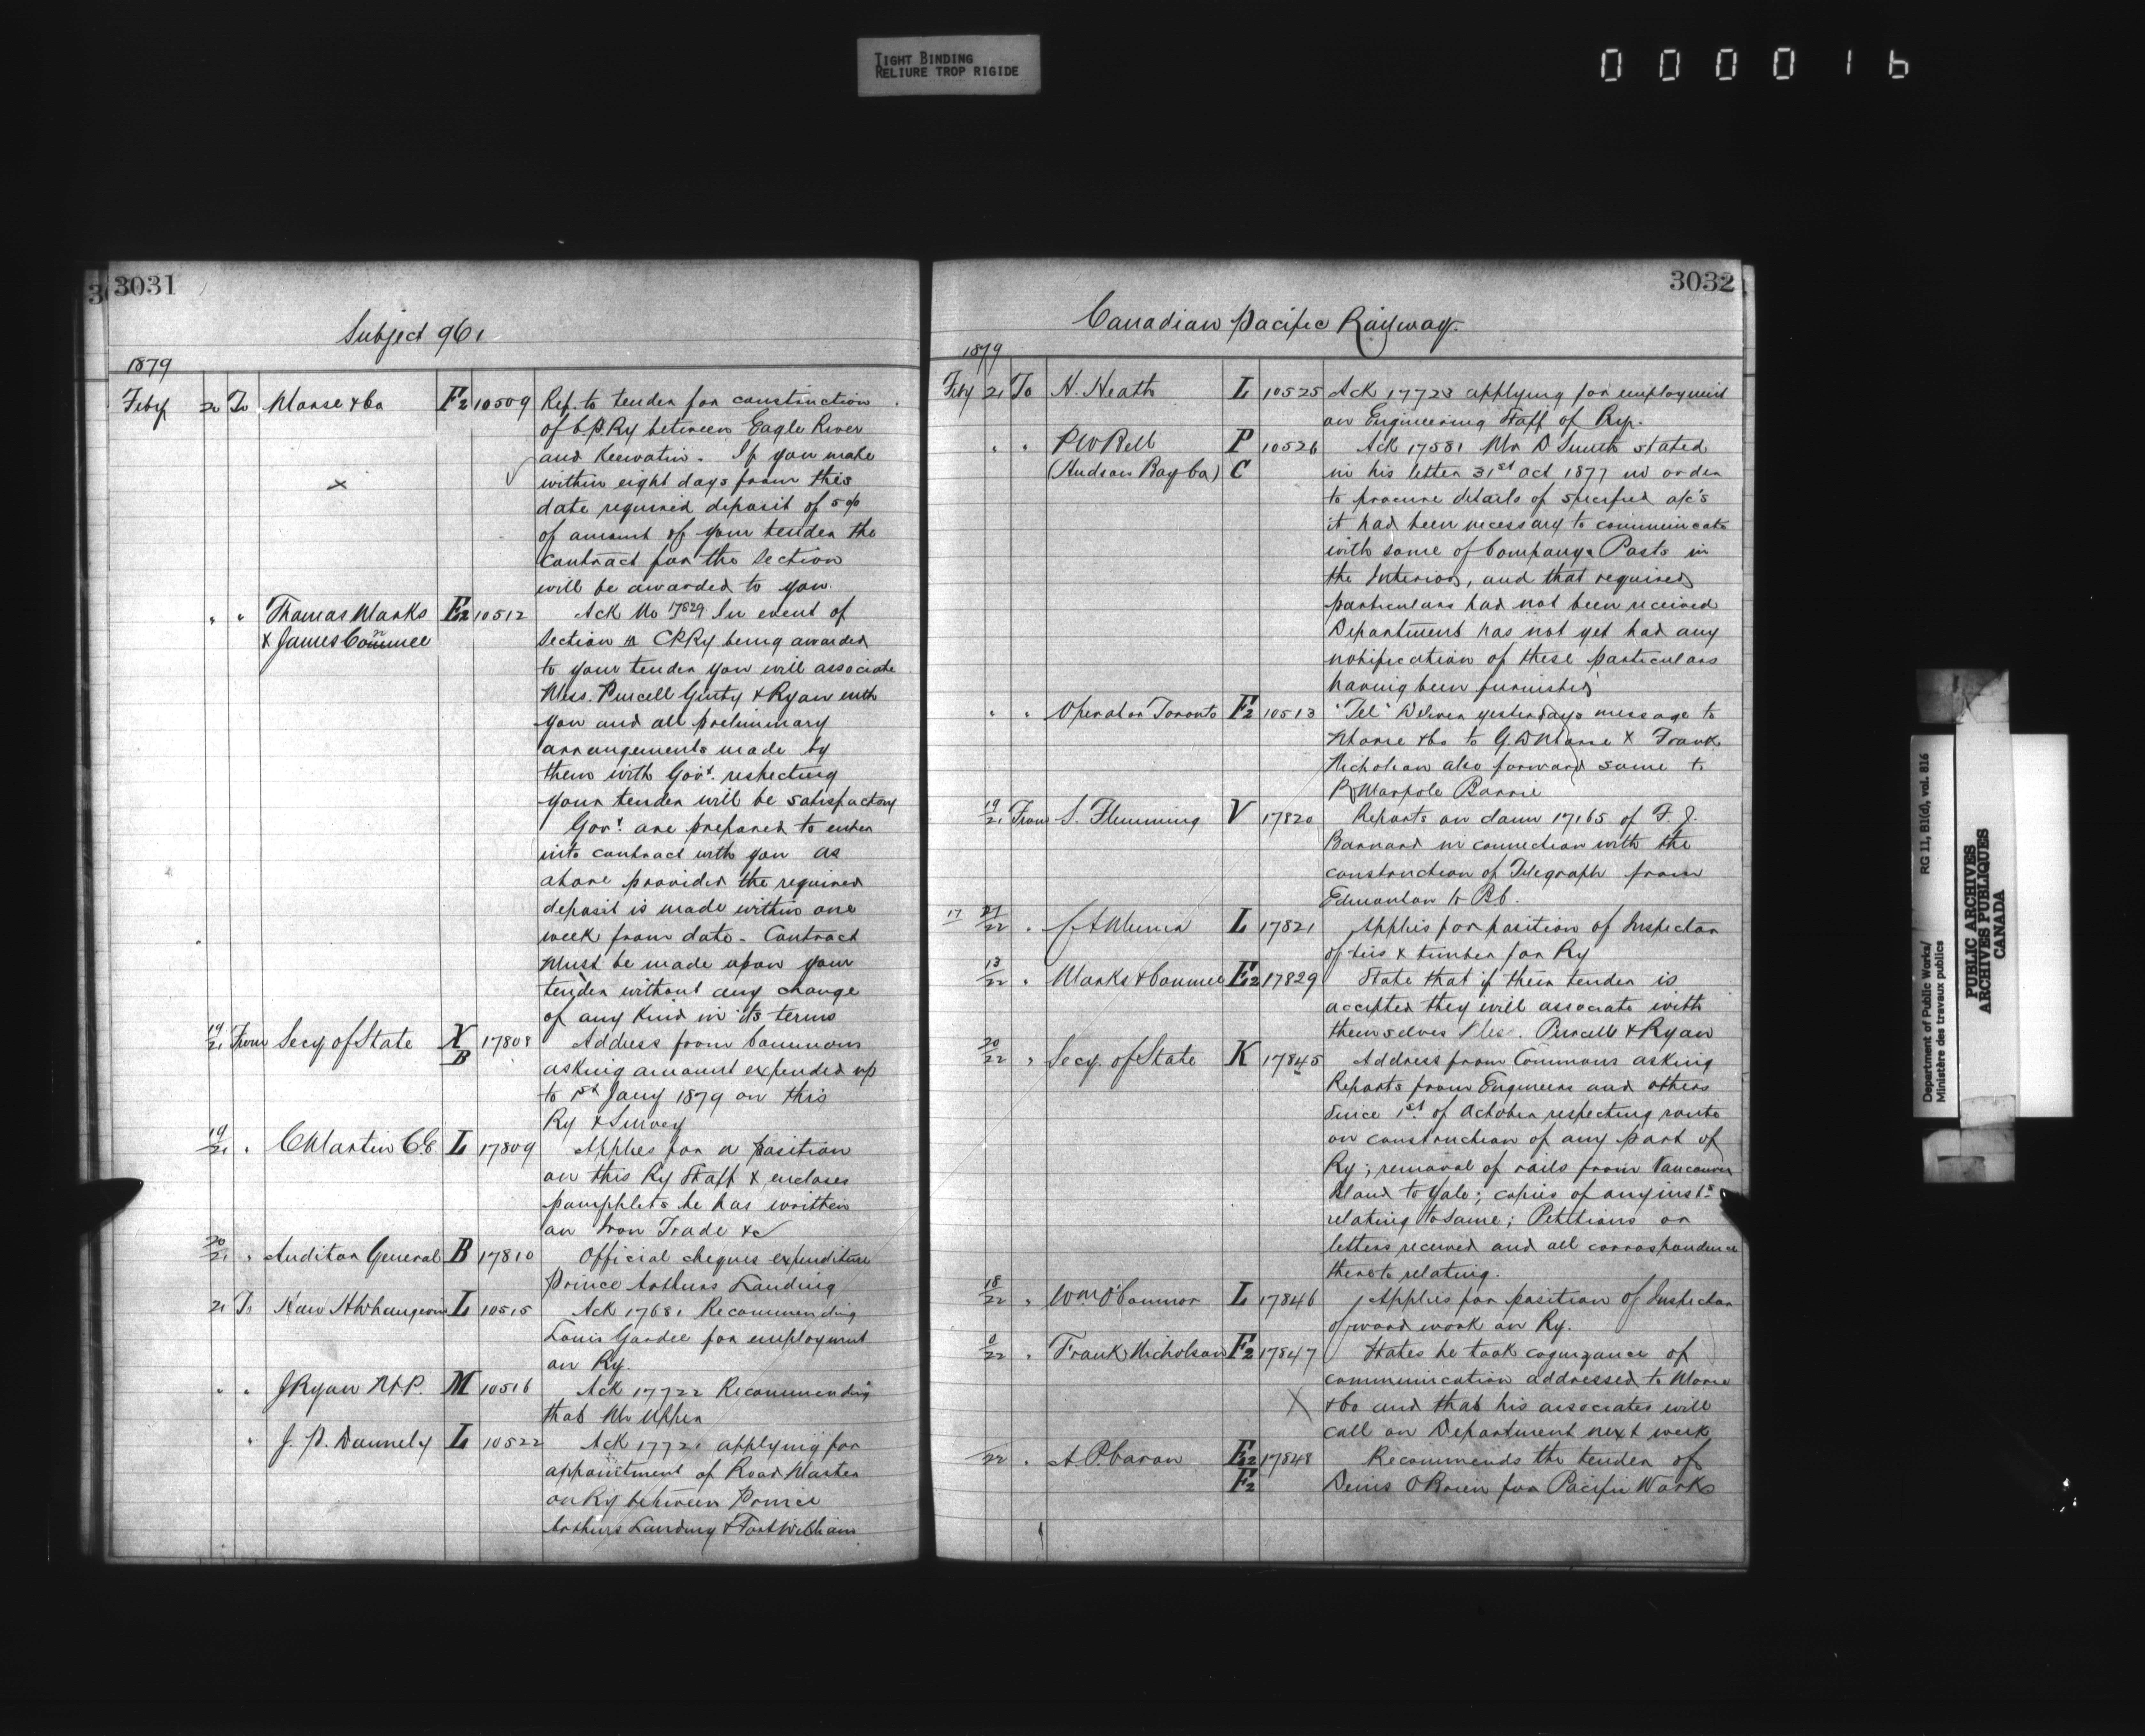 TIGHT BINDING
RELIURE TROP RIGIDE
0 0 0 0 1 6
3031
Subject 96.
1879
Feby 20 To Morse & Co F2 10509 Ref. to tender for construction
of C.P.Ry between Eagle River
and Keewatin. If you make
within eight days from this
date required deposit of 5 %
of amount of your tender the
Contract for the Section
will be awarded to you.
" " Thomas Marks E2 10512 Ack No 17829 In event of
& James Conmee Section A CPRy being awarded
to your tender you will associate
Mess. Purcell Ginty & Ryan with
you and all preliminary
arrangements made by
them with Govt. respecting
your tender will be satisfactory
Govt. are prepared to enter
into contract with you as
above provided the required
deposit is made within one
week from date. Contract
must be made upon your
tender without any change
of any kind in its terms
19/21 From Secy of State X 17808 Address from Commons
B asking amount expended up
to 1st Jany 1879 on this
Ry & Survey
19/21 " C Martin C.E L 17809 Applies for a position
on this Ry Staff & encloses
pamphlets he has written
on Iron Trade &c
20/21 " Auditor General B 17810 Official cheques expenditure
Prince Arthurs Landing
21 To L 10515 Ack 17681 Recommending
Louis for employment
on Ry.
" " J Ryan M.P. M 10516 Ack 17722 Recommending
that Mr Upper
" J. D. Donnely L 10522 Ack 17721 applying for
appointment of Road Master
on Ry between Prince
Arthurs Landing & Fort William
3032
Canadian Pacific Railway
1879
Feby 21 To N. Heath L 10525 Ack 17723 applying for employment
on Engineering Staff of Ry.
" " P W Bell P 10526 Ack 17581 Mr D Smith stated
(Hudson Bay Co) C in his letter 31st Oct 1877 in order
to procure details of specified a/c's
it had been necessary to communicate
with some of Companys Posts in
the Interior, and that required
particulars had not been received
Department has not yet had any
notification of these particulars
having been furnished
" " Operator Toronto F2 10513 "Tel" Deliver yesterdays message to
Morse & Co to G. D Morse & Frank
Nicholson also forward same to
R Marpole Barrie
19/21 From S. Flemming V 17820 Reports on claim 17165 of F. J.
Barnard in connection with the
construction of Telegraph from
Edmonton to B.C.
17 21/22 " L 17821 Applies for position of Inspector
of ties & timber for Ry
13/22 " Marks & Conmee E2 17829 State that if their tender is
accepted they will associate with
themselves Mess. Purcell & Ryan
20/22 " Secy. of State K 17845 Address from Commons asking
Reports from Engineers and others
Since 1st. of October respecting route
or construction of any part of
Ry; removal of rails from Vancouver
Island to Yale; copies of any insts
relating to same; Petitions or
letters received and all correspondence
thereto relating.
18/22 " Wm O'Connor L 17846 Applies for position of Inspector
of wood work on Ry.
/22 " Frank Nicholson F2 17847 States he took cognizance of
communication addressed to Morse
& Co and that his associates will
call on Department next week
/22 " A P. Caron E2 17848 Recommends the tender of
F2 Denis O'Brien for Pacific Works
Department of Public Works/ RG 11, B1(d), vol. 816
Ministère des travaux publics
PUBLIC ARCHIVES
ARCHIVES PUBLIQUES
CANADA